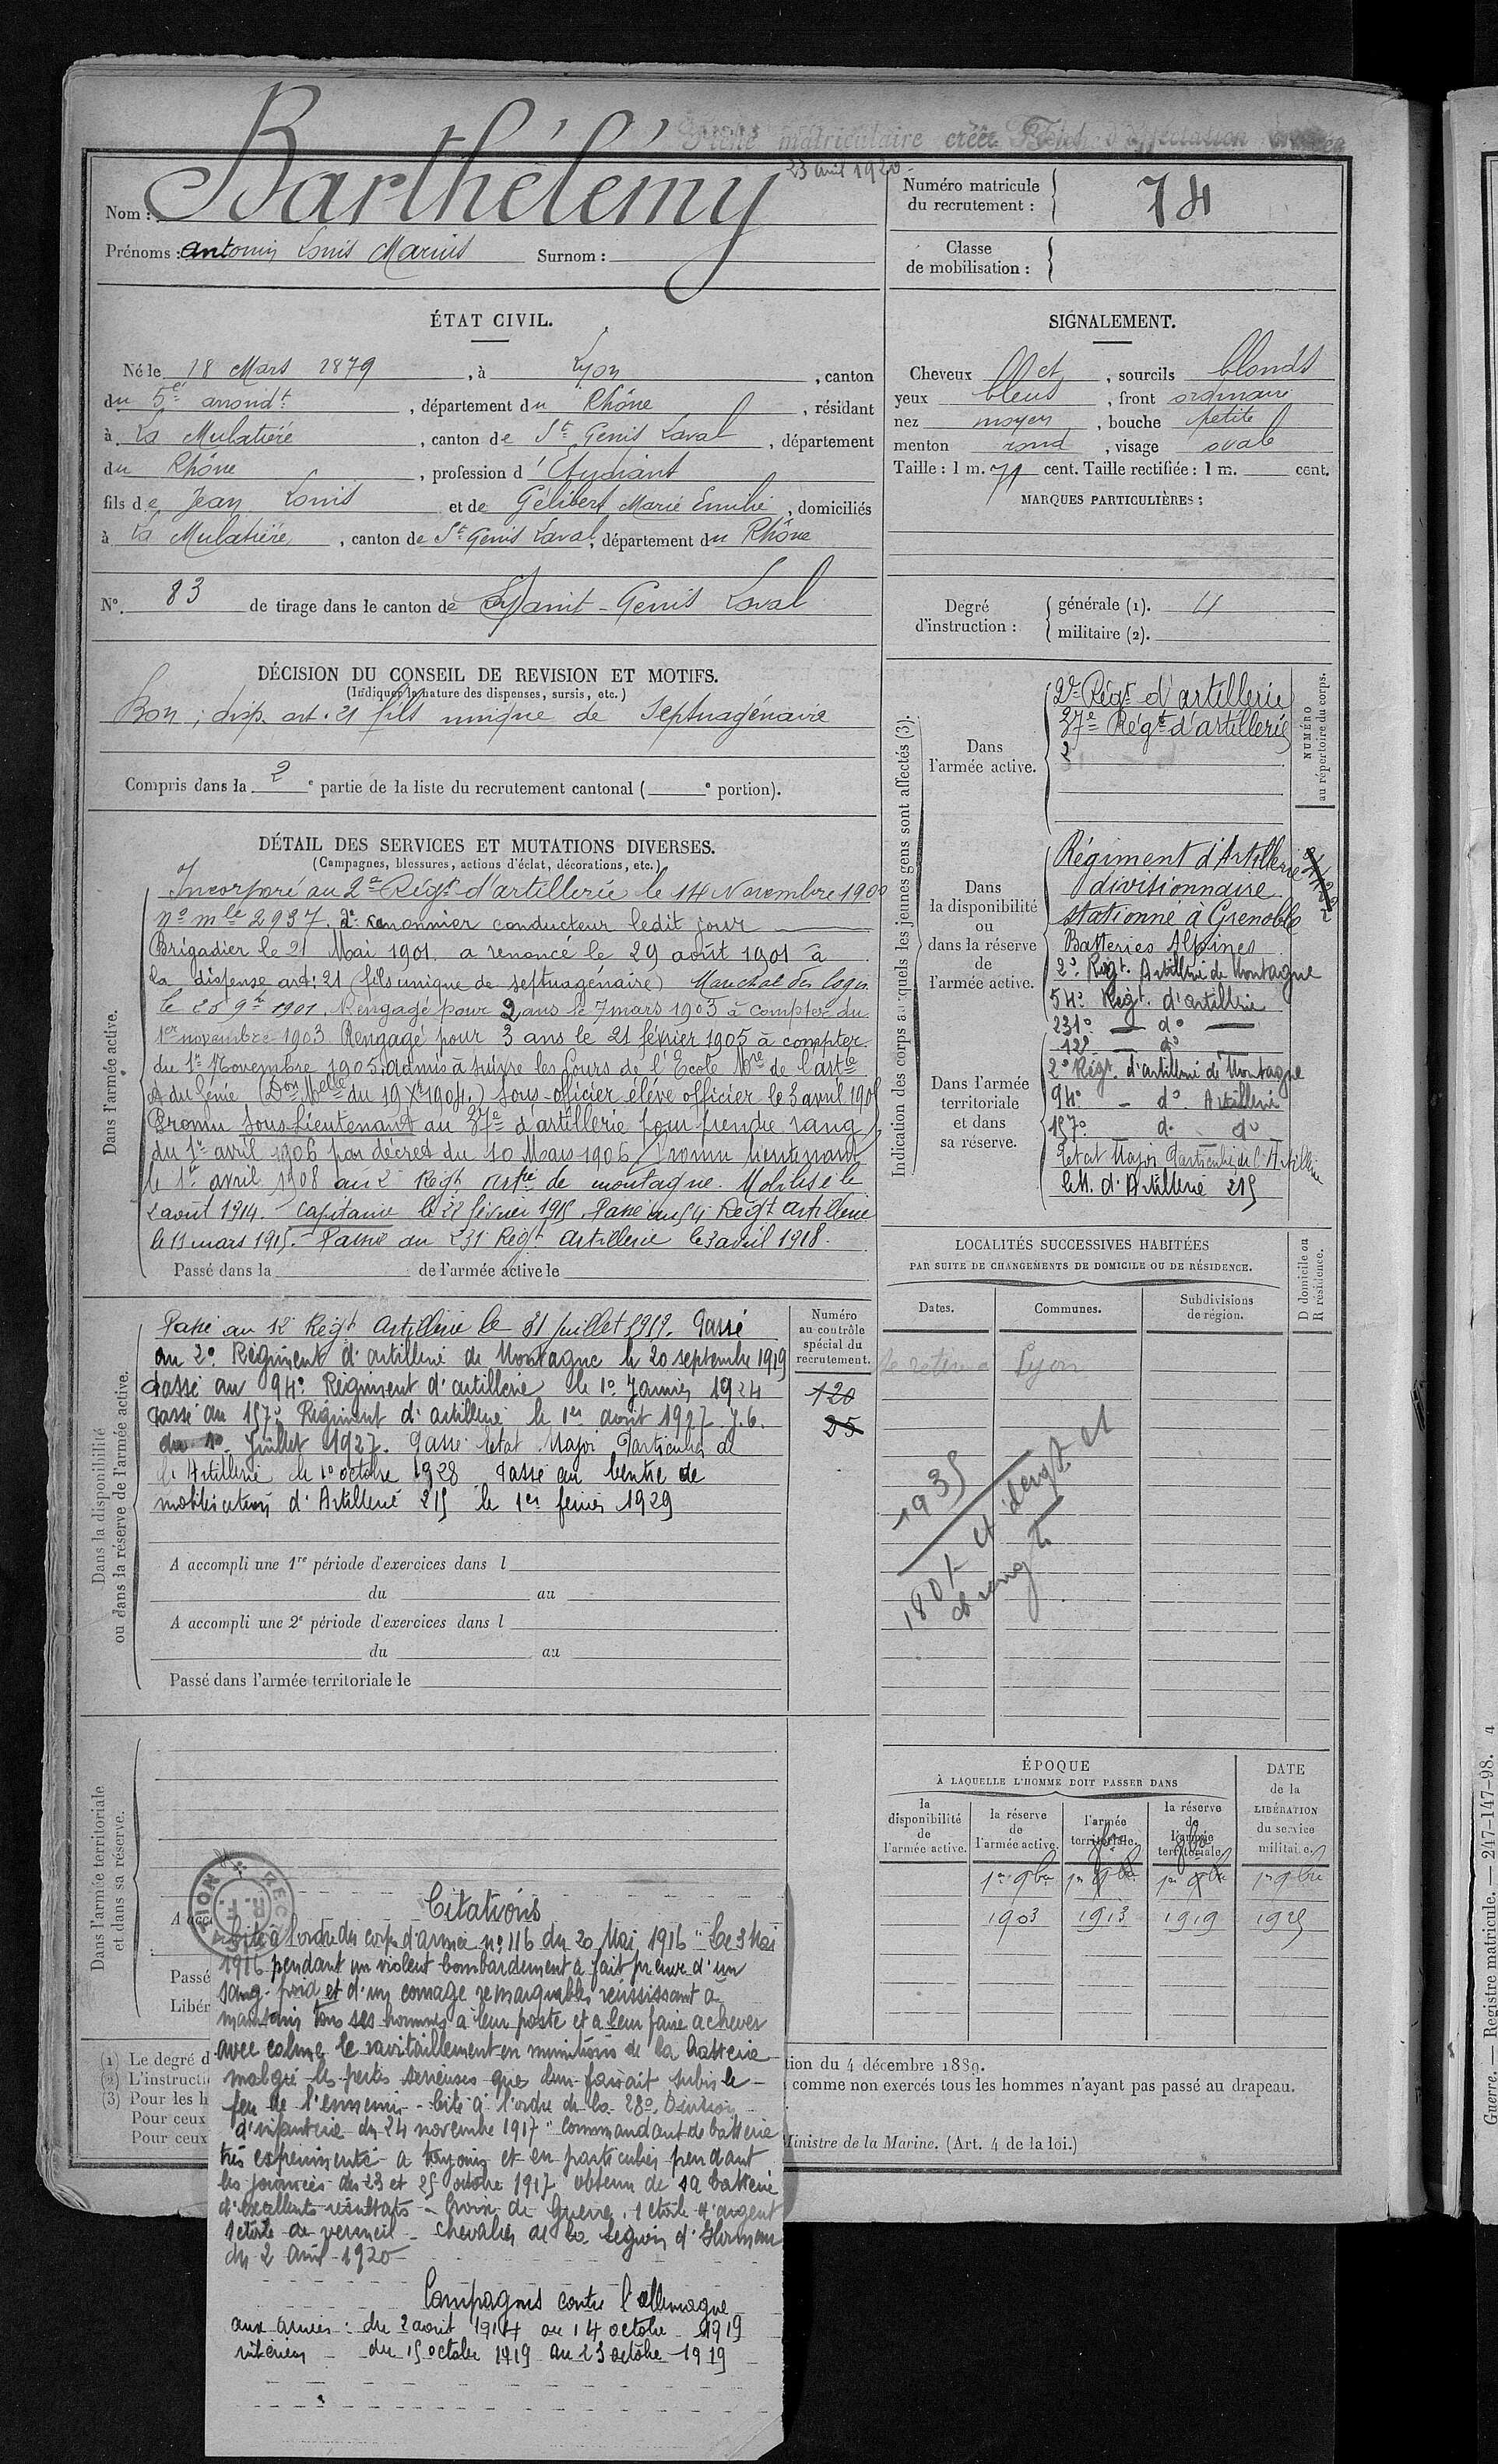 Fiche matriculaire créée
23 avril 1920
Nom : Barthélémy
Prénoms : Antonin Louis Marius Surnom :
Numéro matricule du recrutement : 74
Classe de mobilisation :
ÉTAT CIVIL.
Né le 18 Mars 1879, à Lyon, canton
du 5e arrondt, département du Rhône, résidant
à La Mulatière, canton de St Genis Laval, département
du Rhône, profession d'Etudiant
fils de Jean Louis et de Gélibert Marie Emilie, domiciliés
à La Mulatière, canton de St Genis Laval, département du Rhône
N° 83 de tirage dans le canton de Saint-Genis Laval
SIGNALEMENT.
Cheveux et, sourcils blonds
yeux bleus, front ordinaire
nez moyen, bouche petite
menton rond, visage ovale
Taille : 1 m. 71 cent. Taille rectifiée : 1 m. cent.
MARQUES PARTICULIÈRES :
Degré d'instruction : générale (1). 4
militaire (2).
DÉCISION DU CONSEIL DE REVISION ET MOTIFS.
(Indiquer la nature des dispenses, sursis, etc.)
Bon ; disp. art. 21 fils unique de septuagénaire
Compris dans la 2e partie de la liste du recrutement cantonal (e portion).
DÉTAIL DES SERVICES ET MUTATIONS DIVERSES.
(Campagnes, blessures, actions d'éclat, décorations, etc.)
Dans l'armée active.
Incorporé au 2e Régt d'artillerie le 14 Novembre 1900
n° mle 2937. 2e canonnier conducteur ledit jour
Brigadier le 21 Mai 1901. a renoncé le 29 août 1901 à
la dispense art: 21 (fils unique de septuagénaire) Maréchal des logis
le 26 9bre 1901. Rengagé pour 2 ans le 7 mars 1903 à compter du
1er novembre 1903 Rengagé pour 3 ans le 21 février 1905 à compter
du 1er Novembre 1905. admis à suivre les Cours de l'Ecole Mre de l'artie
et du Génie (Don Melle du 19 Xbre 1904.) Sous-officier élève officier le 3 avril 1905
Promu Sous-lieutenant au 37e d'artillerie pour prendre rang
du 1er avril 1906 par décret du 10 Mars 1906 Promu lieutenant
le 1er avril 1908 au 2e Régt artie de montagne. Mobilisé le
2 août 1914. Capitaine le 22 février 1915 Passé au 54 Régt artillerie
le 13 mars 1915. Passé au 231 Régt artillerie le 3 avril 1918.
Passé dans la de l'armée active le
Indication des corps auxquels les jeunes gens sont affectés (3).
NUMÉRO au répertoire du corps.
Dans l'armée active.
2e Régt d'artillerie
37e Régt d'artillerie
2
Dans la disponibilité ou dans la réserve de l'armée active.
Régiment d'Artillerie
divisionnaire
stationné à Grenoble
Batteries Alpines
2e Régt. Artillerie de Montagne
54e Régt. d'artillerie
231e — do —
12e — do
Dans l'armée territoriale et dans sa réserve.
2e Régt. d'artillerie de Montagne
94e — do. Artillerie
157e do. do
Etat Major Particulier de l'Artillerie
C.M. d'Artillerie 215
Dans la disponibilité ou dans la réserve de l'armée active.
Passé au 12e Régt Artillerie le 31 juillet 1919. Passé
au 2e Régiment d'artillerie de Montagne le 20 septembre 1919
Passé au 94e Régiment d'artillerie le 1er Janvier 1924
Passé au 157e Régiment d'artillerie le 1er août 1927 J.O.
du 10 Juillet 1927. Passé Etat Major Particulier de
l'Artillerie le 1er octobre 1928 Passé au Centre de
mobilisation d'Artillerie 215 le 1er février 1929
Numéro au contrôle spécial du recrutement.
120
25
A accompli une 1re période d'exercices dans l
du au
A accompli une 2e période d'exercices dans l
du au
Passé dans l'armée territoriale le
LOCALITÉS SUCCESSIVES HABITÉES
PAR SUITE DE CHANGEMENTS DE DOMICILE OU DE RÉSIDENCE.
Dates. Communes. Subdivisions de région. D domicile ou R résidence.
Se retire à Lyon
1935
Dans l'armée territoriale et dans sa réserve.
ÉPOQUE
À LAQUELLE L'HOMME DOIT PASSER DANS
la disponibilité de l'armée active.
la réserve de l'armée active.
l'armée territoriale.
la réserve de l'armée territoriale.
DATE de la LIBÉRATION du service militaire.
1er 9bre 1er 9bre 1er 9bre 1er 9bre
1903 1913 1919 1925
A acc
Passé
Libér
Citations
Cité à l'ordre du corps d'armée n° 116 du 20 Mai 1916 "Le 3 Mai
1916 pendant un violent bombardement a fait preuve d'un
sang-froid et d'un courage remarquables réussissant à
maintenir tous ses hommes à leur poste et a leur faire achever
avec calme le ravitaillement en munitions de la batterie
malgré les pertes sérieuses que leur faisait subir le
feu de l'ennemi - Cité à l'ordre de la 28e Division
d'infanterie du 24 novembre 1917 "Commandant de batterie
très expérimenté a toujours et en particulier pendant
les journées des 23 et 25 octobre 1917 obtenu de sa batterie
d'excellents résultats - Croix de Guerre. 1 étoile d'argent
1 étoile de vermeil - Chevalier de la Légion d'Honneur
du 2 Avril 1920
Campagnes contre l'allemagne
aux armées : du 2 août 1914 au 14 octobre 1919
intérieur - du 15 octobre 1919 au 23 octobre 1919
(1) Le degré d
(2) L'instructi
(3) Pour les h
Pour ceux
Pour ceux
tion du 4 décembre 1889.
comme non exercés tous les hommes n'ayant pas passé au drapeau.
Ministre de la Marine. (Art. 4 de la loi.)
Guerre. — Registre matricule. — 247-147-98. 4